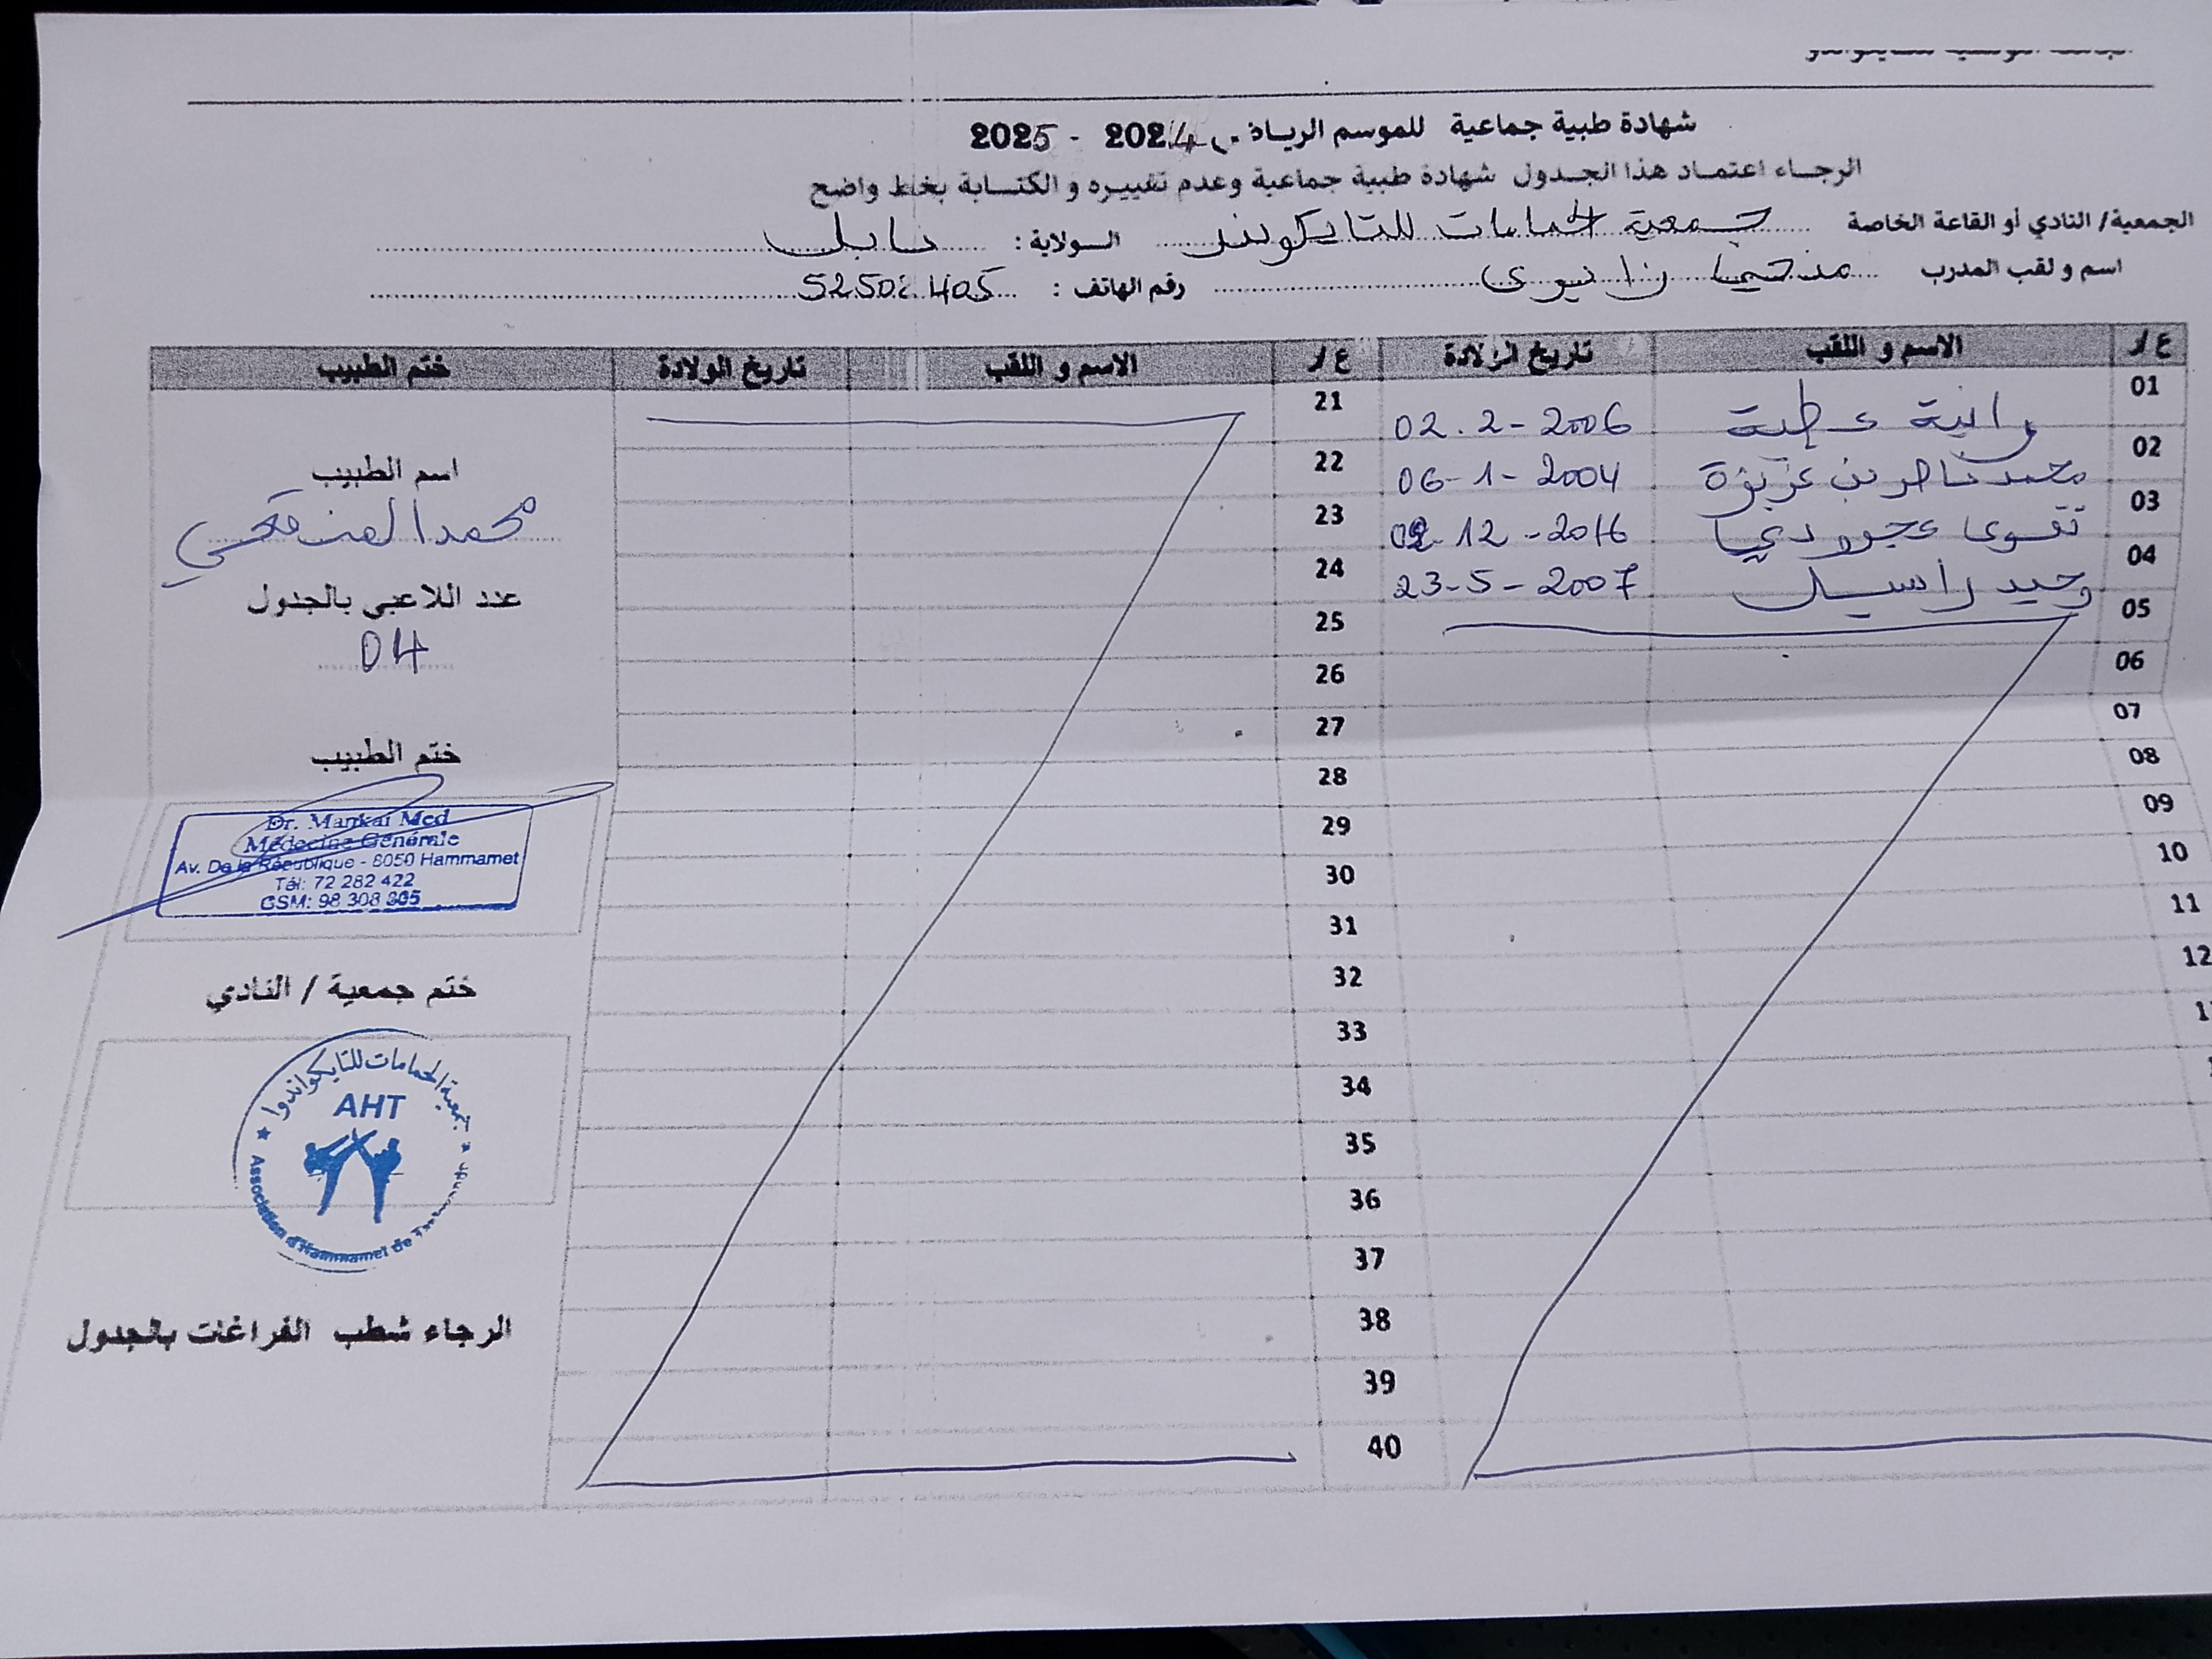 شهادة طبية جماعية للموسم الرياضي 2024 - 2025
الرجاء اعتماد هذا الجدول شهادة طبية جماعية وعدم تغييره و الكتابة بخط واضح
الجمعية/ النادي أو القاعة الخاصة جمعية الحمامات للتايكوندو الولاية : نابل
اسم و لقب المدرب رقم الهاتف :
ع/ر الاسم و اللقب تاريخ الولادة ع/ر الاسم و اللقب تاريخ الولادة ختم الطبيب
01 رانية عطية 02.2-2006 21
02 محمد ناصر بن عزيزة 06-1-2004 22
03 تقوى 12-2016 23
04 وحيد راسيل 23-5-2007 24
05 25
06 26
07 27
08 28
09 29
10 30
11 31
12 32
33
34
35
36
37
38
39
40
اسم الطبيب
محمد المنقعي
عدد اللاعبي بالجدول
04
ختم الطبيب
Dr. Mankai Med
Médecine Générale
Av. De la République - 8050 Hammamet
Tél: 72 282 422
GSM: 98 308 305
ختم جمعية / النادي
جمعية الحمامات للتايكواندوا
AHT
Association d'Hammamet de
الرجاء شطب الفراغات بالجدول